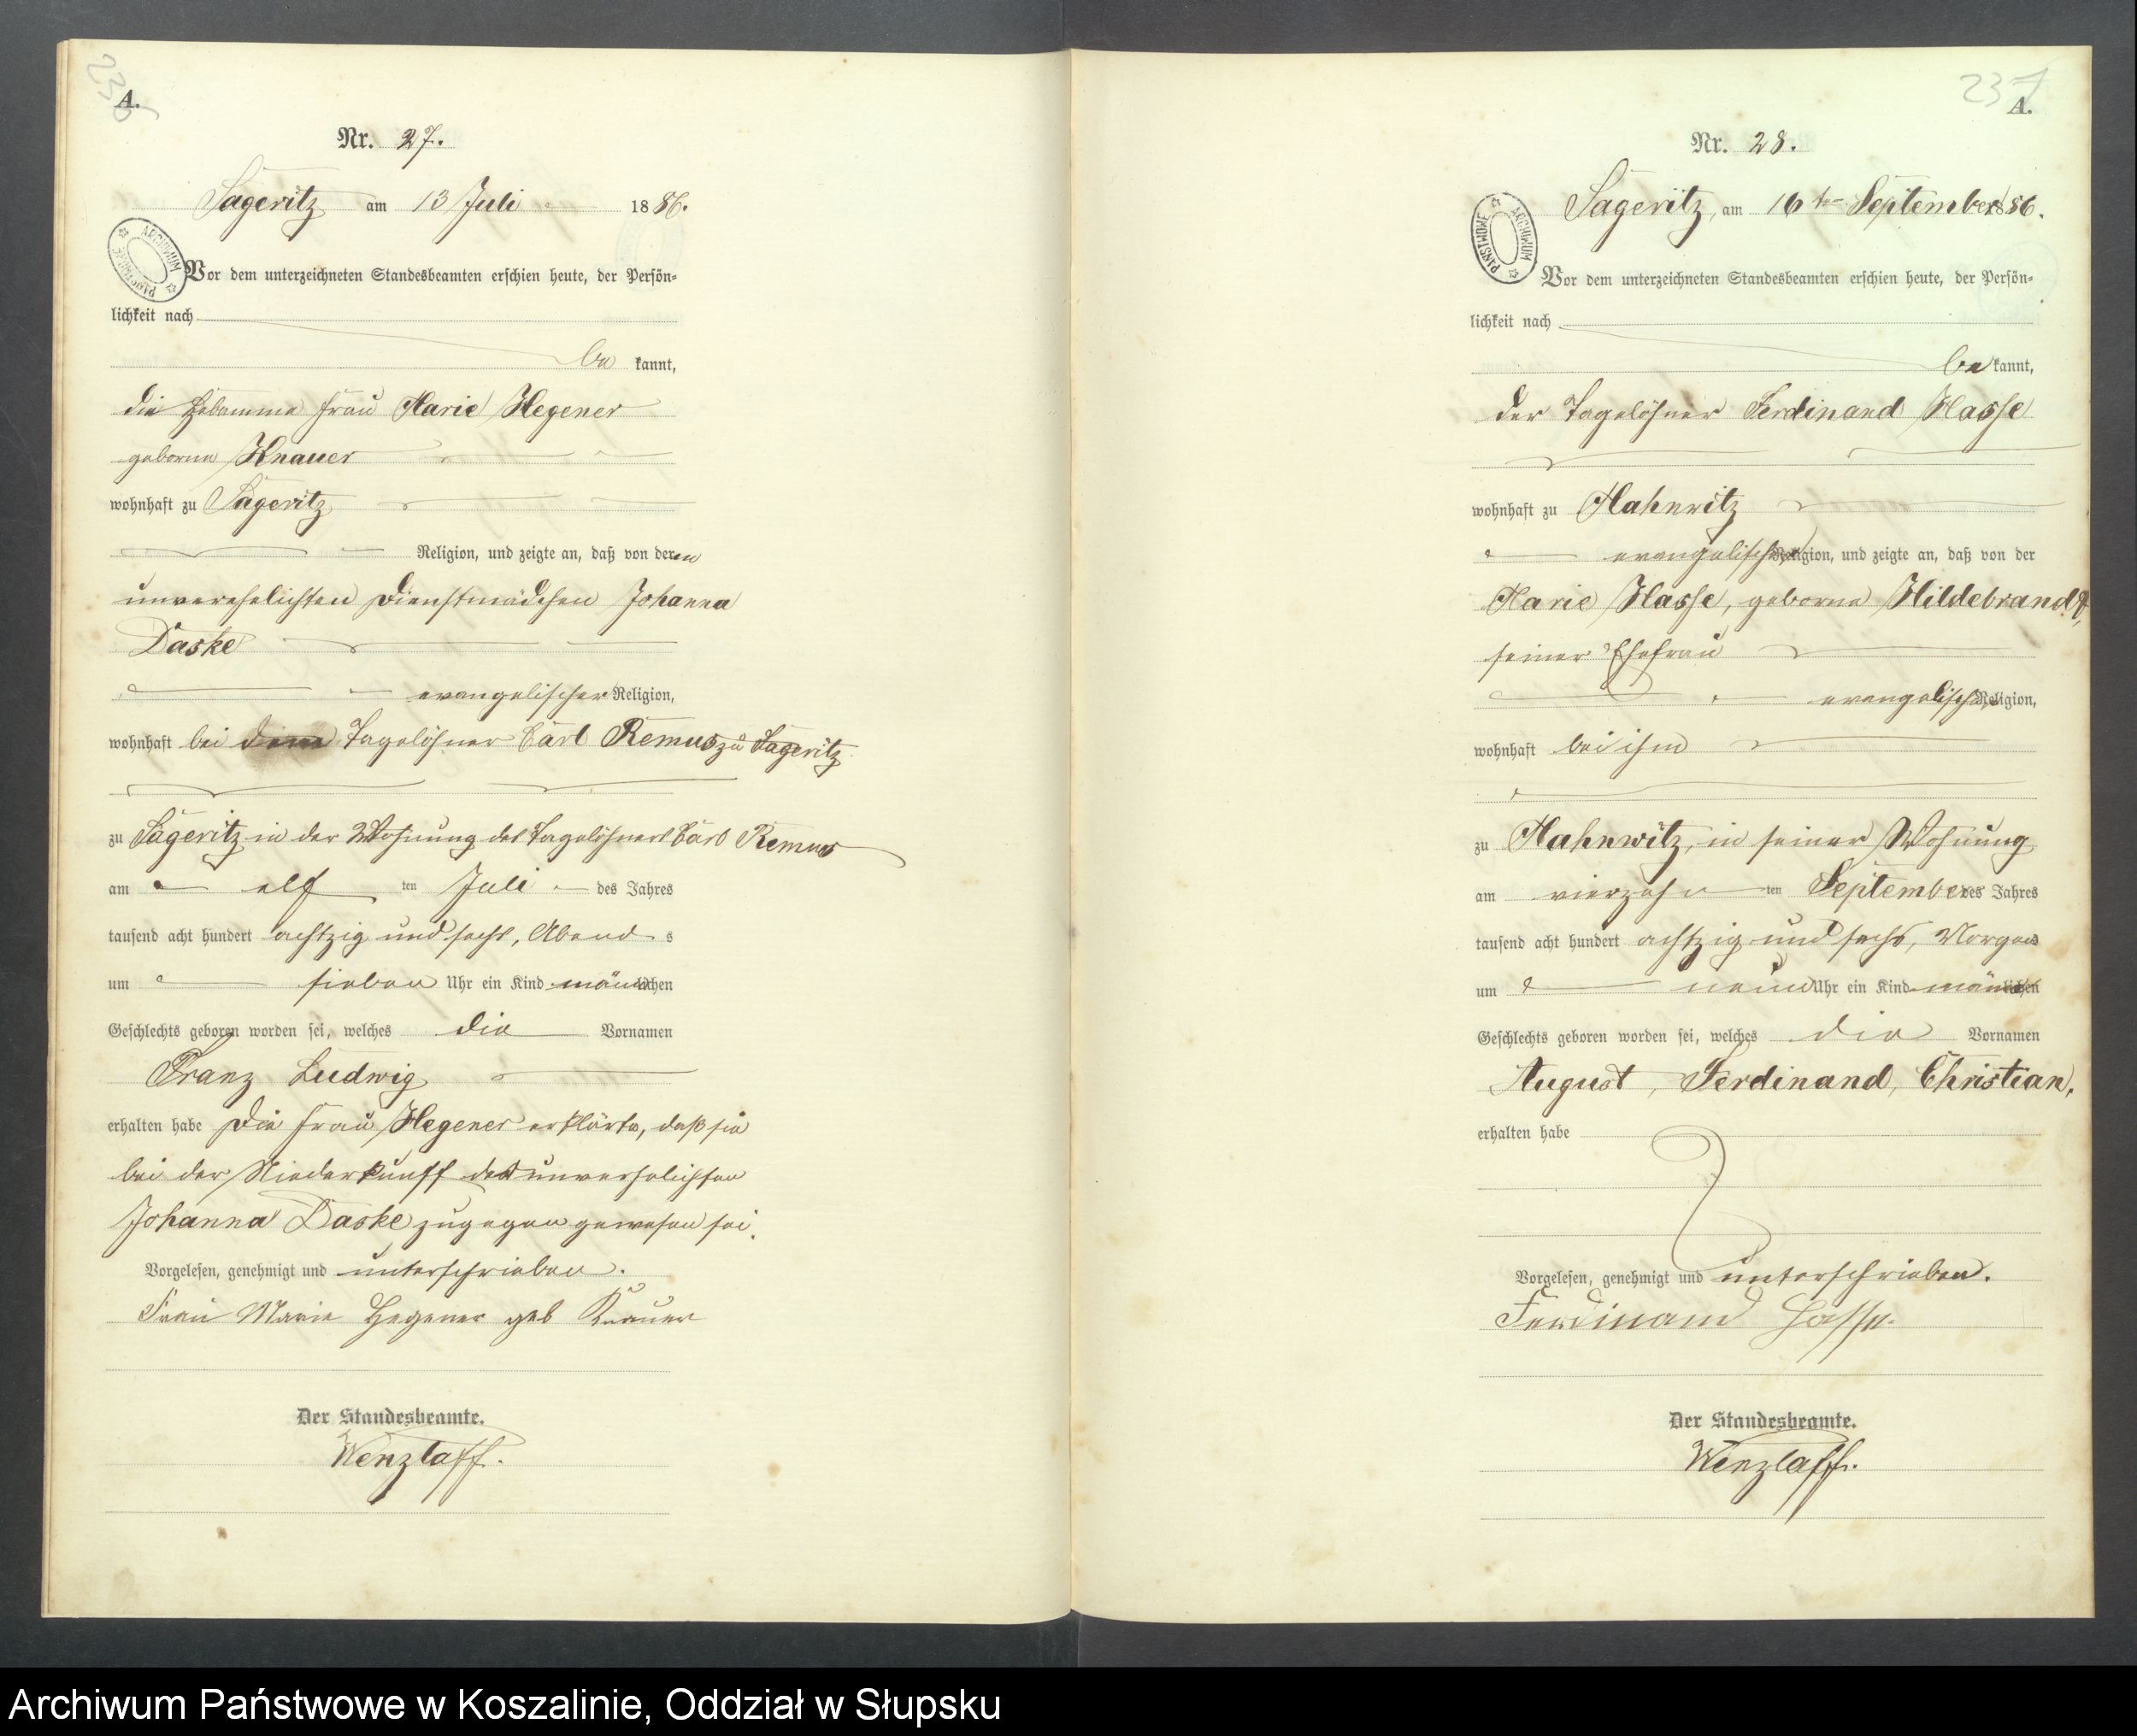 236
A.
Nr. 27.
Sageritz am 13 Juli 1886.
ARCHIWUM PAŃSTWOWE
Vor dem unterzeichneten Standesbeamten erschien heute, der Persön-
lichkeit nach
be kannt,
die Hebamme Frau Marie Hegener
geborne Knauer
wohnhaft zu Sageritz
Religion, und zeigte an, daß von der
unverehelichten Dienstmädchen Johanna
Daske
evangelischer Religion,
wohnhaft bei dem Tagelöhner Carl Remus zu Sageritz
zu Sageritz in der Wohnung des Tagelöhners Carl Remus
am elf ten Juli des Jahres
tausend acht hundert achtzig und sechs, Abend s
um sieben Uhr ein Kind männlichen
Geschlechts geboren worden sei, welches die Vornamen
Franz Ludwig
erhalten habe Die Frau Hegener erklärte, daß sie
bei der Niederkunft der unverehelichten
Johanna Daske zugegen gewesen sei.
Vorgelesen, genehmigt und unterschrieben.
Frau Marie Hegener geb Knauer
Der Standesbeamte.
Wenzlaff.
237
A.
Nr. 28.
Sageritz, am 16ten September 1886.
PAŃSTWOWE ARCHIWUM
Vor dem unterzeichneten Standesbeamten erschien heute, der Persön-
lichkeit nach
be kannt,
der Tagelöhner Ferdinand Hasse
wohnhaft zu Mahnwitz
evangelischer Religion, und zeigte an, daß von der
Marie Hasse, geborne Hildebrandt,
seiner Ehefrau
evangelischer Religion,
wohnhaft bei ihm
zu Mahnwitz, in seiner Wohnung
am vierzehn ten September des Jahres
tausend acht hundert achtzig und sechs, Morgens
um neun Uhr ein Kind männlichen
Geschlechts geboren worden sei, welches die Vornamen
August, Ferdinand, Christian,
erhalten habe
Vorgelesen, genehmigt und unterschrieben.
Ferdinand Hasse.
Der Standesbeamte.
Wenzlaff.
Archiwum Państwowe w Koszalinie, Oddział w Słupsku